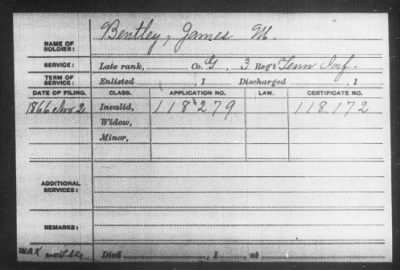 Bentley, James M.
NAME OF SOLDIER:
SERVICE: Late rank, Co. G, 3 Reg't Tenn Inf.
TERM OF SERVICE: Enlisted , 1 Discharged , 1
DATE OF FILING. CLASS. APPLICATION NO. LAW. CERTIFICATE NO.
1866 Nov 2 Invalid, 118279 118172
Widow,
Minor,
ADDITIONAL SERVICES:
REMARKS:
Died , 1 , at